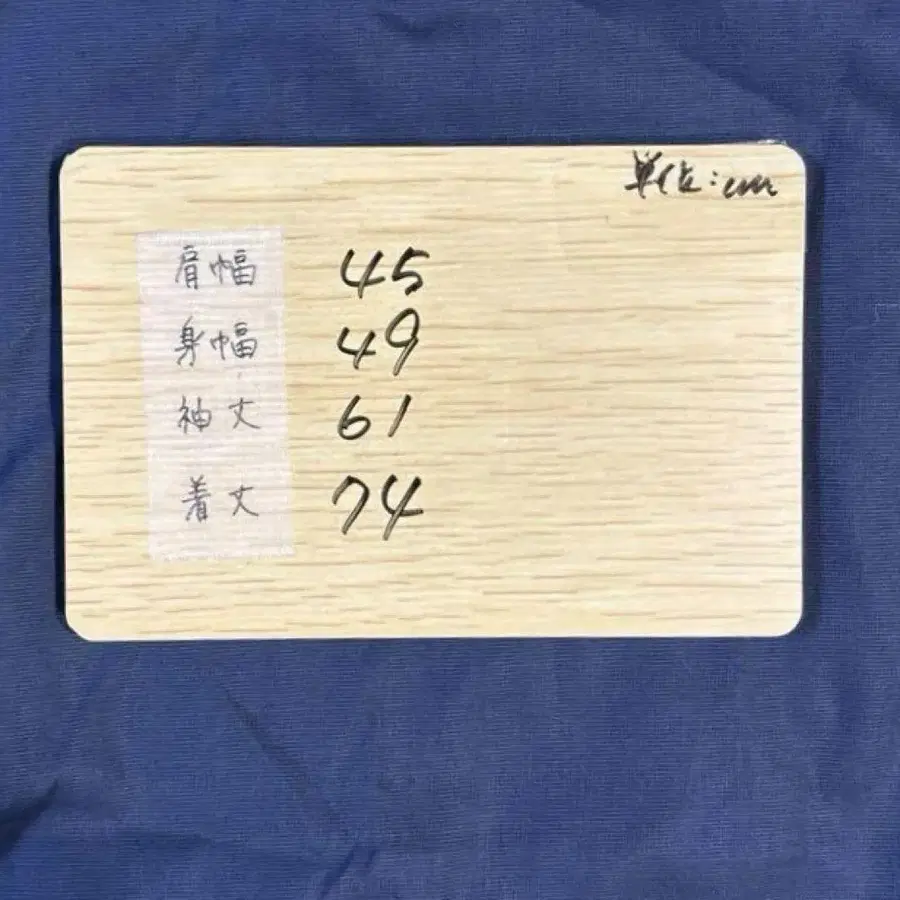 単位:cm
肩幅 45
身幅 49
袖丈 61
着丈 74